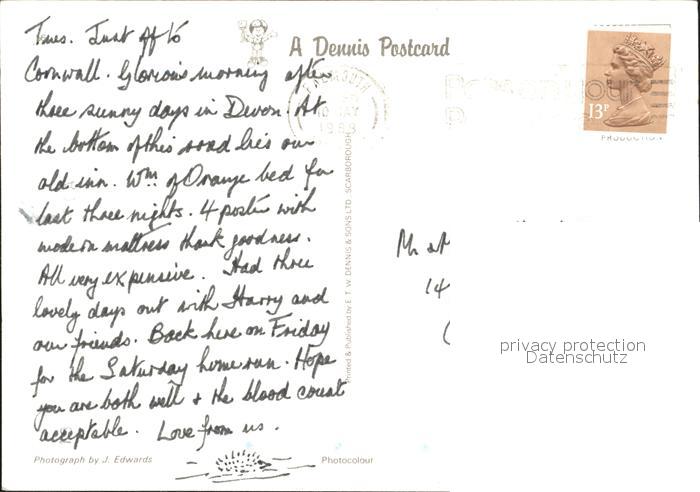 Tues. Just off to
Cornwall. Glorious morning after
three sunny days in Devon. At
the bottom of this road lies our
old inn. Wm of Orange bed for
last three nights. 4 poster with
modern mattress thank goodness.
All very expensive. Had three
lovely days out with Harry and
our friends. Back here on Friday
for the Saturday home run. Hope
you are both well & the blood count
acceptable. Love from us.
Photograph by J. Edwards
Photocolour
A Dennis Postcard
Printed & Published by E. T. W. DENNIS & SONS LTD. SCARBOROUGH
10 MAY
13P
14
privacy protection
Datenschutz